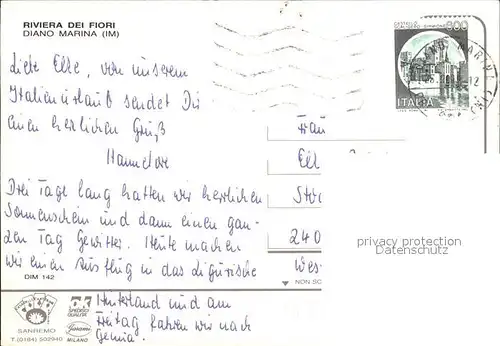 RIVIERA DEI FIORI
DIANO MARINA (IM)
Liebe Else, von unserem
Italienurlaub sendet Dir
einen herzlichen Gruß
Hannelore
Drei Tage lang hatten wir herrlichen
Sonnenschein und dann einen gan-
zen Tag Gewitter. Heute machen
wir einen Ausflug in das ligurische
Hinterland und am
Freitag fahren wir nach
Genua.
600
ITALIA
Frau
Els
240
Wes
privacy protection
Datenschutz
DIM 142
NON SC
SANREMO
T. (0184) 502940
MILANO